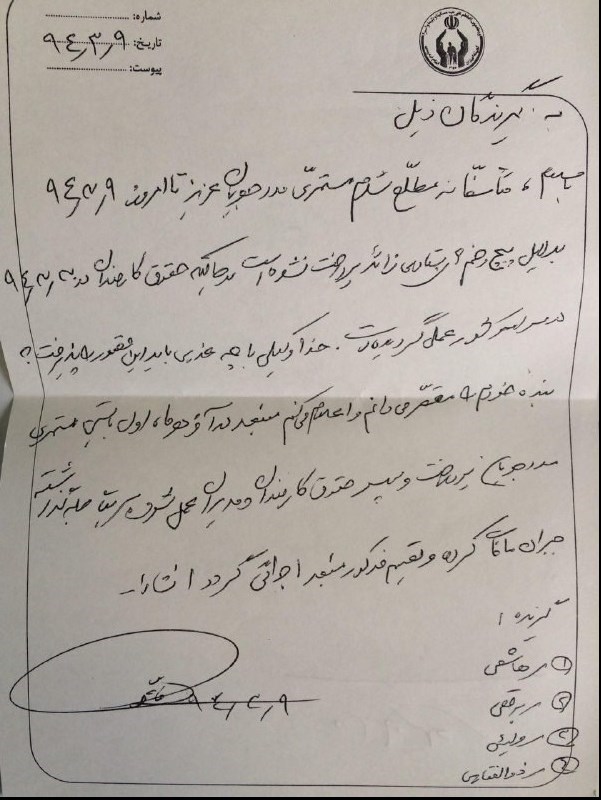 شماره:
تاریخ: ۹۴٫۳٫۹
پیوست:
به: گیرندگان ذیل
با سلام، متأسفانه مطلع شدم مستمری مددجویان عزیز تا امروز ۹۴٫۳٫۹
بدلایل پیچ و خم های ستادی زائد پرداخت نشده است درحالیکه حقوق کارمندان در ۹۴٫۳٫
در سراسر کشور عمل گردیده است. خدا وکیلی با چه عذری باید این قصور را پذیرفت؟
بنده خودم را مقصر می دانم و اعلام می کنم منبعد در آخر هر ماه، اول بایستی مستمری
مددجویان پرداخت و سپس حقوق کارمندان و مدیران عمل شود گذشته
جبران مافات کرده و تصمیم مذکور منبعد اجرائی گردد انشاءا...
گیرنده:
۱ هاشمی
۲ برقعی
۳ ولیئی
۴ ذوالفقاری
۹۴٫۳٫۹